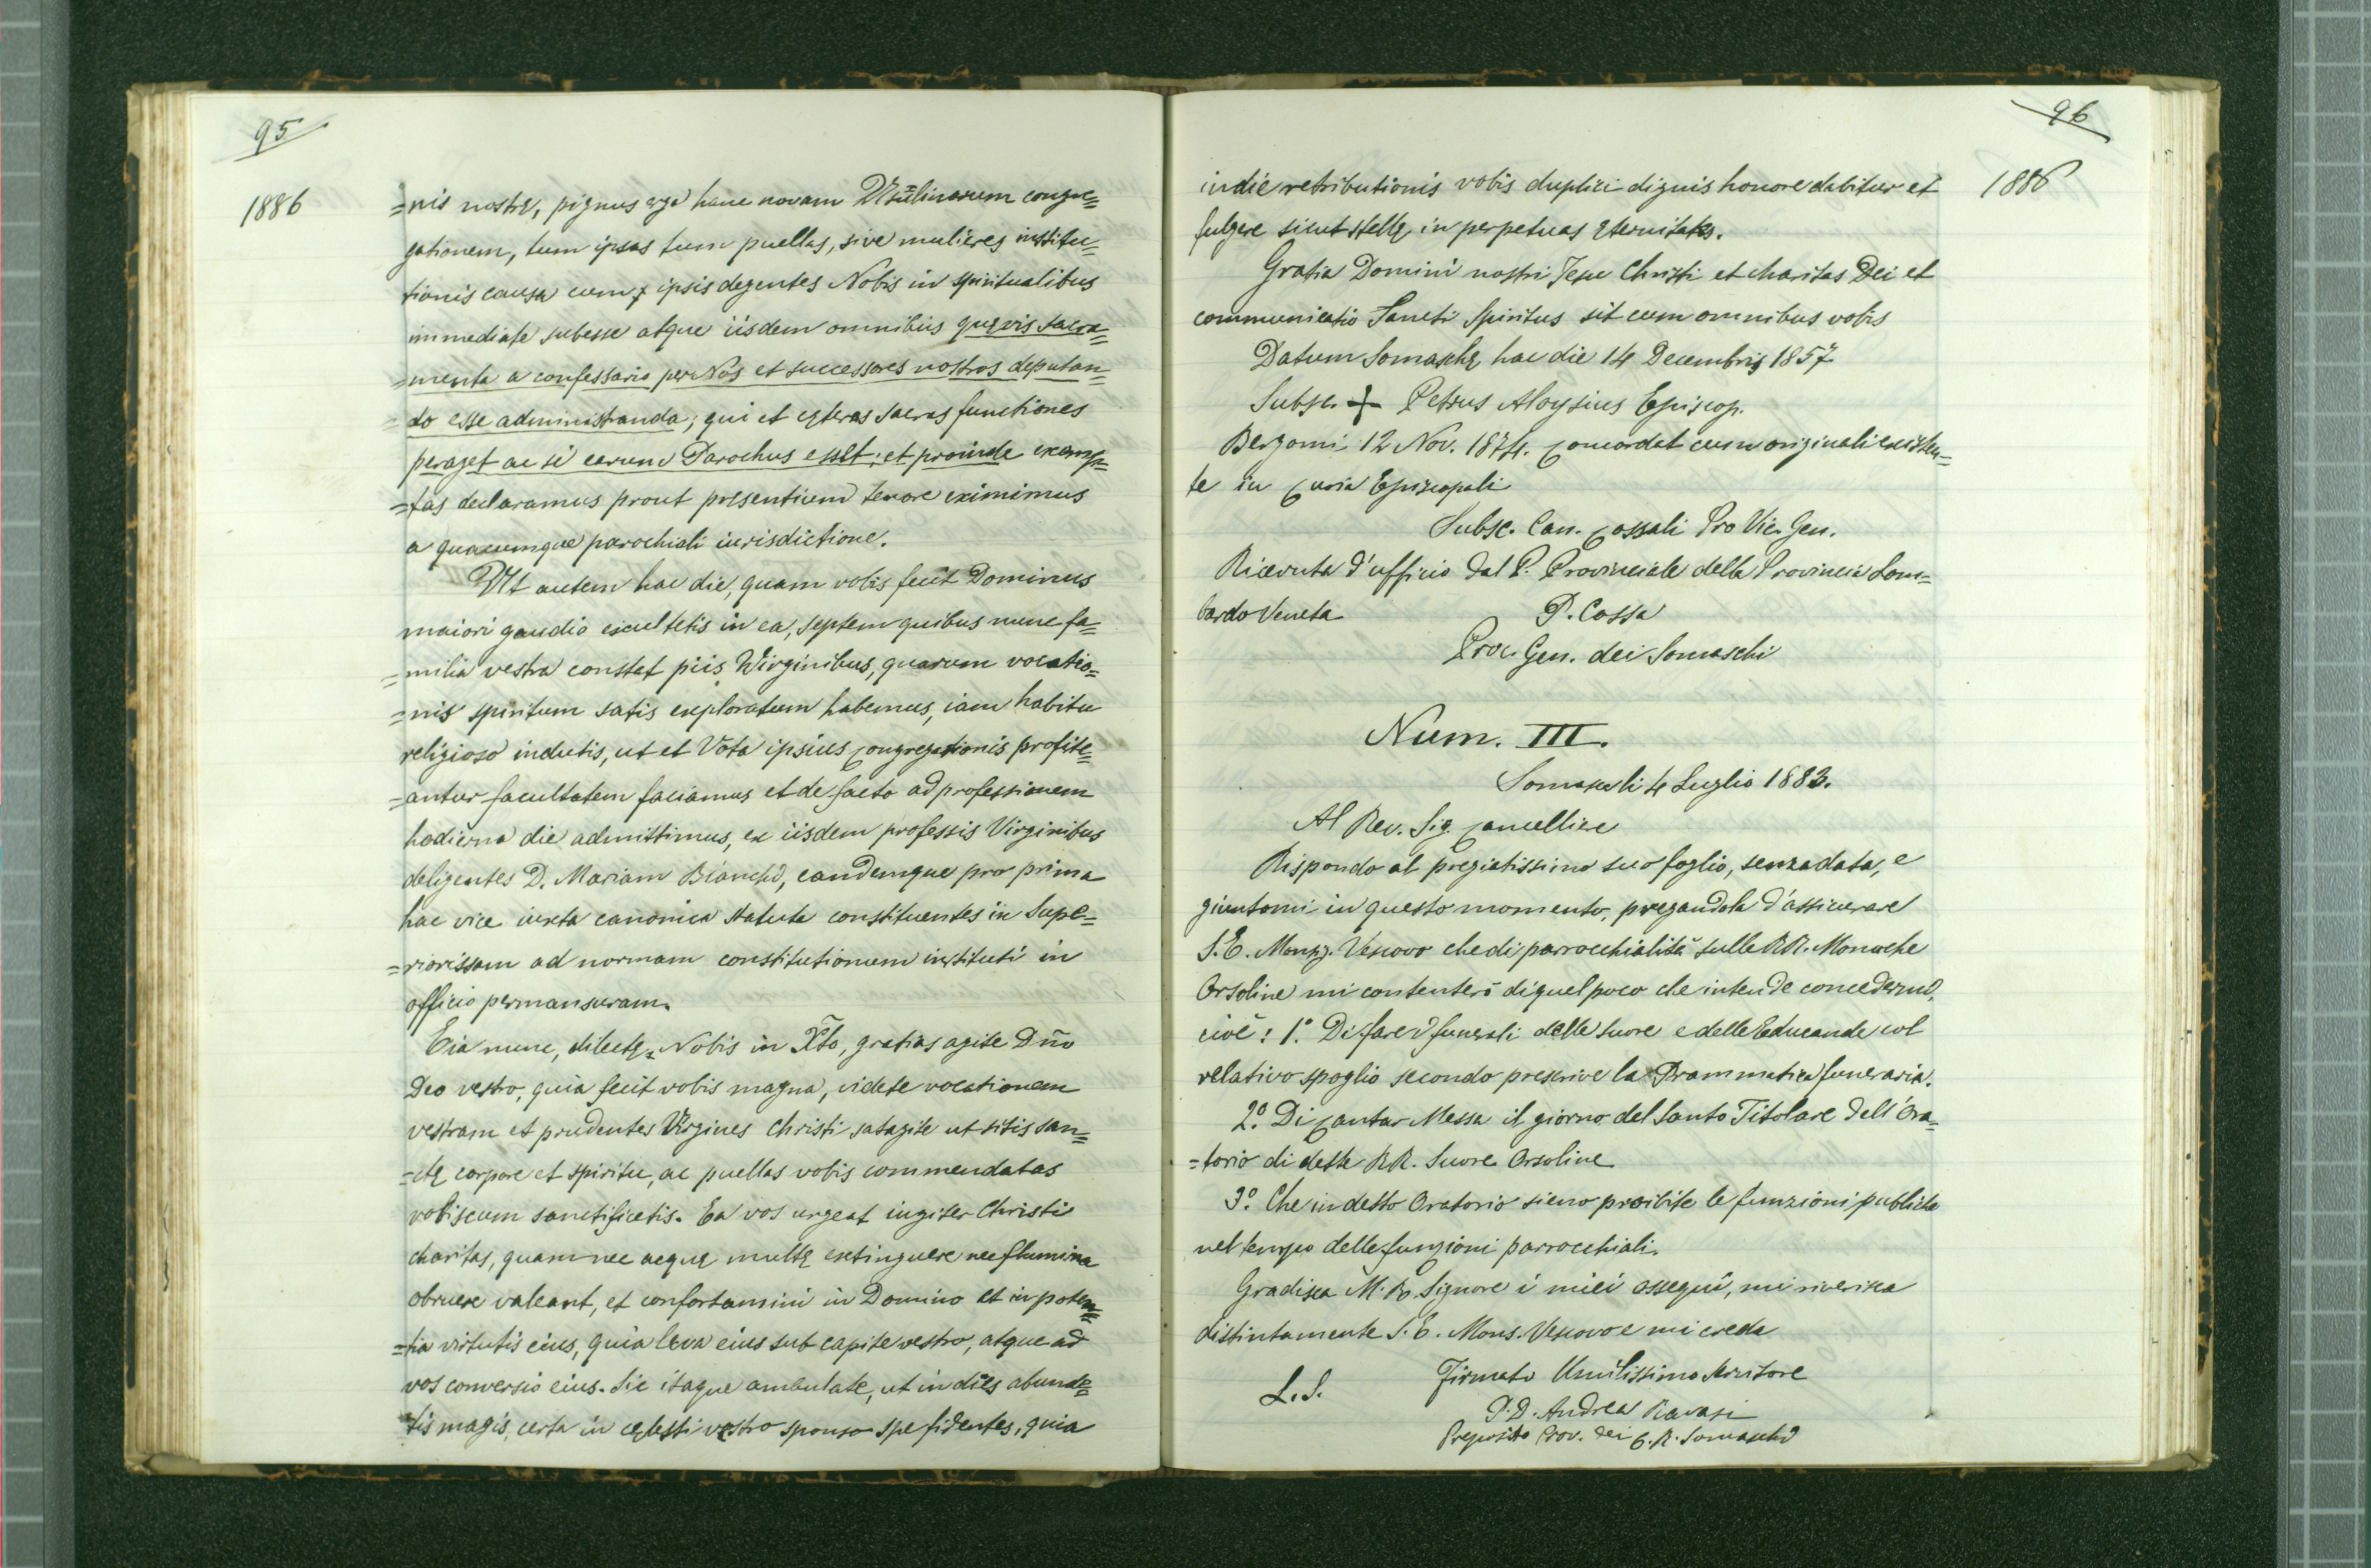 95
1886
=nis nostrę, pignus erga hanc novam Ursulinarum congre=
gationem, tum ipsas tum puellas, sive mulieres institu=
tionis causa cum ipsis degentes Nobis in spiritualibus
immediate subesse atque iisdem omnibus quęvis sacra=
=menta a confessario per Nos et successores nostros deputan=
=do esse administranda; qui et cęteras sacras functiones
peraget ac si earum Parochus esset; et proinde exemp=
=tas declaramus prout pręsentium tenore eximimus
a quacumque parochiali iurisdictione.
Ut autem hac die, quam vobis fecit Dominus
maiori gaudio exultetis in ea, septem quibus nunc fa=
=milia vestra constat piis Virginibus, quarum vocatio=
=nis spiritum satis exploratum habemus, iam habitu
religioso indutis, ut et Vota ipsius Congregationis profite=
=antur facultatem faciamus et de facto ad professionem
hodierna die admittimus, ex iisdem professis Virginibus
deligentes D. Mariam Bianchi, eandemque pro prima
hac vice iuxta canonica statuta constituentes in Supe=
=riorissam ad normam constitutionum instituti in
officio permansuram.
Eia nunc, dilectę Nobis in Xto, gratias agite Dño
Deo vestro, quia fecit vobis magna, videte vocationem
vestram et prudentes Virgines Christi satagite ut sitis san=
=ctę corpore et spiritu, ac puellas vobis commendatas
vobiscum sanctificetis. Ea vos urgeat iugiter Christi
charitas, quam nec acquę multę extinguere nec flumina
obruere valeant, et confortamini in Domino et in poten=
=tia virtutis eius, quia leva eius sub capite vestro, atque ad
vos conversio eius. Sic itaque ambulate, ut in dies abunde=
=tis magis, certa in cęlesti vestro sponso spe fidentes, quia
96
1886
in die retributionis vobis duplici dignis honore dabitur et
fulgere sicut stellę in perpetuas ęternitates.
Gratia Domini nostri Jesu Christi et charitas Dei et
communicatio Sancti Spiritus sit cum omnibus vobis
Datum Somaschę hac die 14 Decembris 1857
Subsc. + Petrus Aloysius Episcop.
Bergomi 12 Nov. 1874. Concordat cum originali existen=
te in Curia Episcopali
Subsc. Can. Cossali Pro Vic. Gen.
Ricevuta d'ufficio dal P. Provinciale della Provincia Lom=
bardo Veneta P. Cossa
Proc. Gen. dei Somaschi
Num. III.
Somasca li 4 Luglio 1883.
Al Rev. Sig. Cancelliere
Rispondo al pregiatissimo suo foglio, senza data, e
giuntomi in questo momento, pregandola d'assicurare
S. E. Monsg. Vescovo che di parrocchialità sulle RR. Monache
Orsoline mi contenterò di quel poco che intende concedermi,
cioè: 1.° Di fare i funerali delle Suore e delle Educande col
relativo spoglio secondo prescrive la Prammatica funeraria.
2.° Di Cantar Messa il giorno del Santo Titolare dell'Ora=
=torio di dette RR. Suore Orsoline
3.° Che in detto Oratorio sieno proibite le funzioni pubbliche
nel tempo delle funzioni parrocchiali.
Gradisca M. R. Signore i miei ossequi, mi riverisca
distintamente S. E. Mons. Vescovo e mi creda
Firmato Umilissimo Servitore
L. S.
P. D. Andrea Ravasi
Preposito Prov. dei C. R. Somaschi